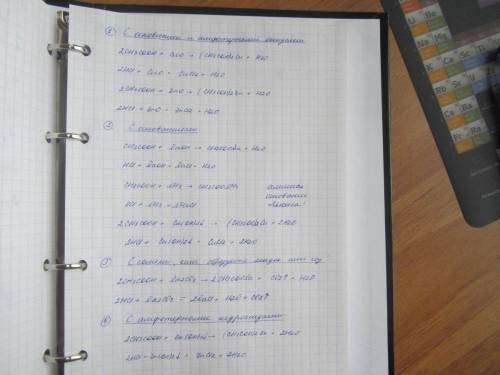 ① С основными и амфотерными оксидами
2CH3COOH + CuO → (CH3COO)2Cu + H2O
2HCl + CuO = CuCl2 + H2O
2CH3COOH + ZnO → (CH3COO)2Zn + H2O
2HCl + ZnO = ZnCl2 + H2O
② С основаниями
CH3COOH + NaOH → CH3COONa + H2O
HCl + NaOH = NaCl + H2O
CH3COOH + NH3 → CH3COONH4
HCl + NH3 = NH4Cl
2CH3COOH + Cu(OH)2↓ → (CH3COO)2Cu + 2H2O
2HCl + Cu(OH)2↓ = CuCl2 + 2H2O
③ С солями, если образуется осадок или газ
2CH3COOH + Na2CO3 → 2CH3COONa + CO2↑ + H2O
2HCl + Na2CO3 = 2NaCl + H2O + CO2↑
④ С амфотерными гидроксидами
2CH3COOH + Zn(OH)2↓ → (CH3COO)2Zn + 2H2O
2HCl + Zn(OH)2↓ = ZnCl2 + 2H2O
Li Be
Na Mg
K Ca Sc
Rb Sr
Cs Ba
Fr Ra